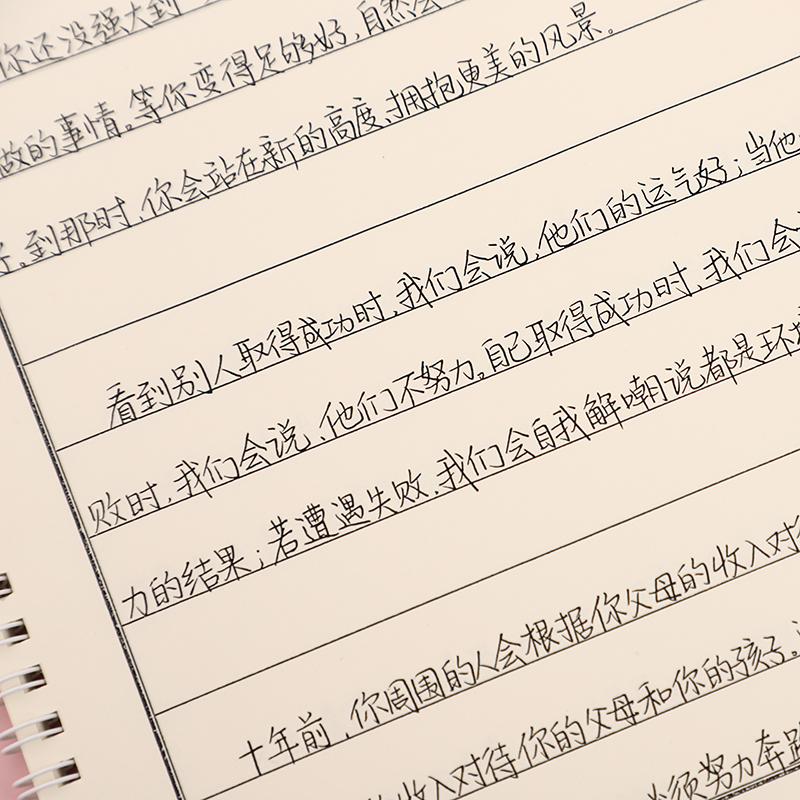 你还没强大到
做的事情。等你变得足够好,自然会
到那时,你会站在新的高度,拥抱更美的风景。
看到别人取得成功时,我们会说,他们的运气好;当他
败时,我们会说,他们不努力。自己取得成功时,我们会
力的结果;若遭遇失败,我们会自我解嘲说都是环境
十年前,你周围的人会根据你父母的收入对待
的收入对待你的父母和你的孩子。
必须努力奔跑